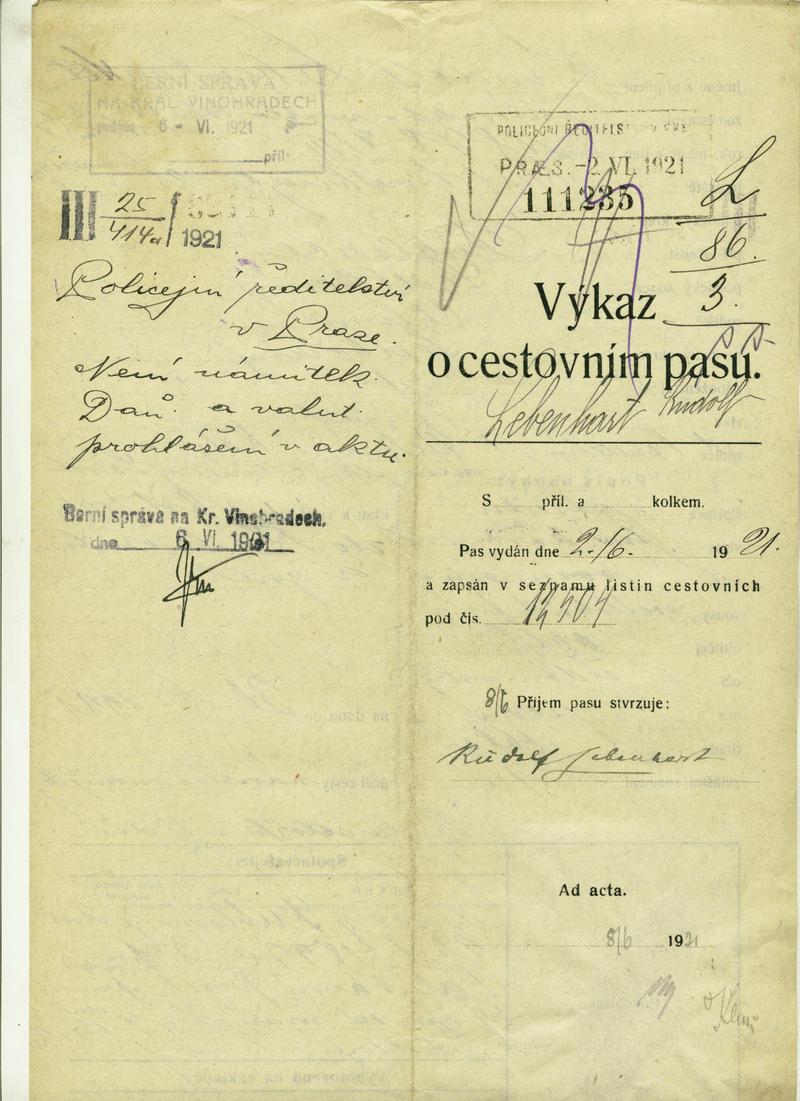 BERNÍ SPRÁVA
NA KRÁL VINOHRADECH
6 - VI. 1921
příl.
III 25/414a 1921
Policejní ředitelství
v Praze.
Není námitek.
Daň. a valut.
prohlášení v aktu.
Berní správa na Kr. Vinohradech.
dne 6 VI. 1921
POLICEJNÍ ŘEDITELSTVÍ
PRÆS. -2 VI. 1921
111235
L
86.
3.
Výkaz
o cestovním pasu.
Lebenhart Rudolf
S příl. a kolkem.
Pas vydán dne 2./6. 19 21.
a zapsán v seznamu listin cestovních
pod čís.
8/6 Příjem pasu stvrzuje:
Rudolf Lebenhart
Ad acta.
8/6 1921